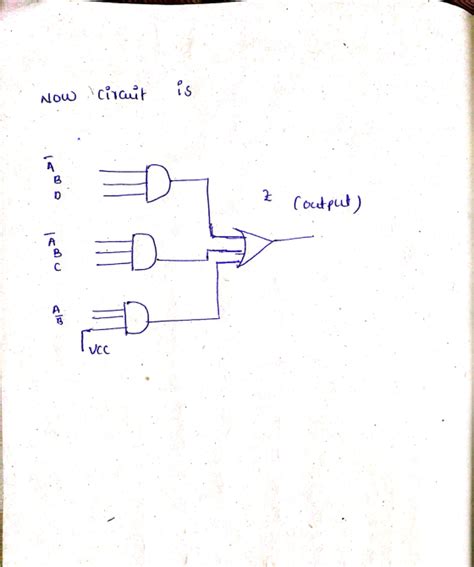 Now circuit is
Ā
B
D
Z (output)
Ā
B
C
A
B̄
VCC